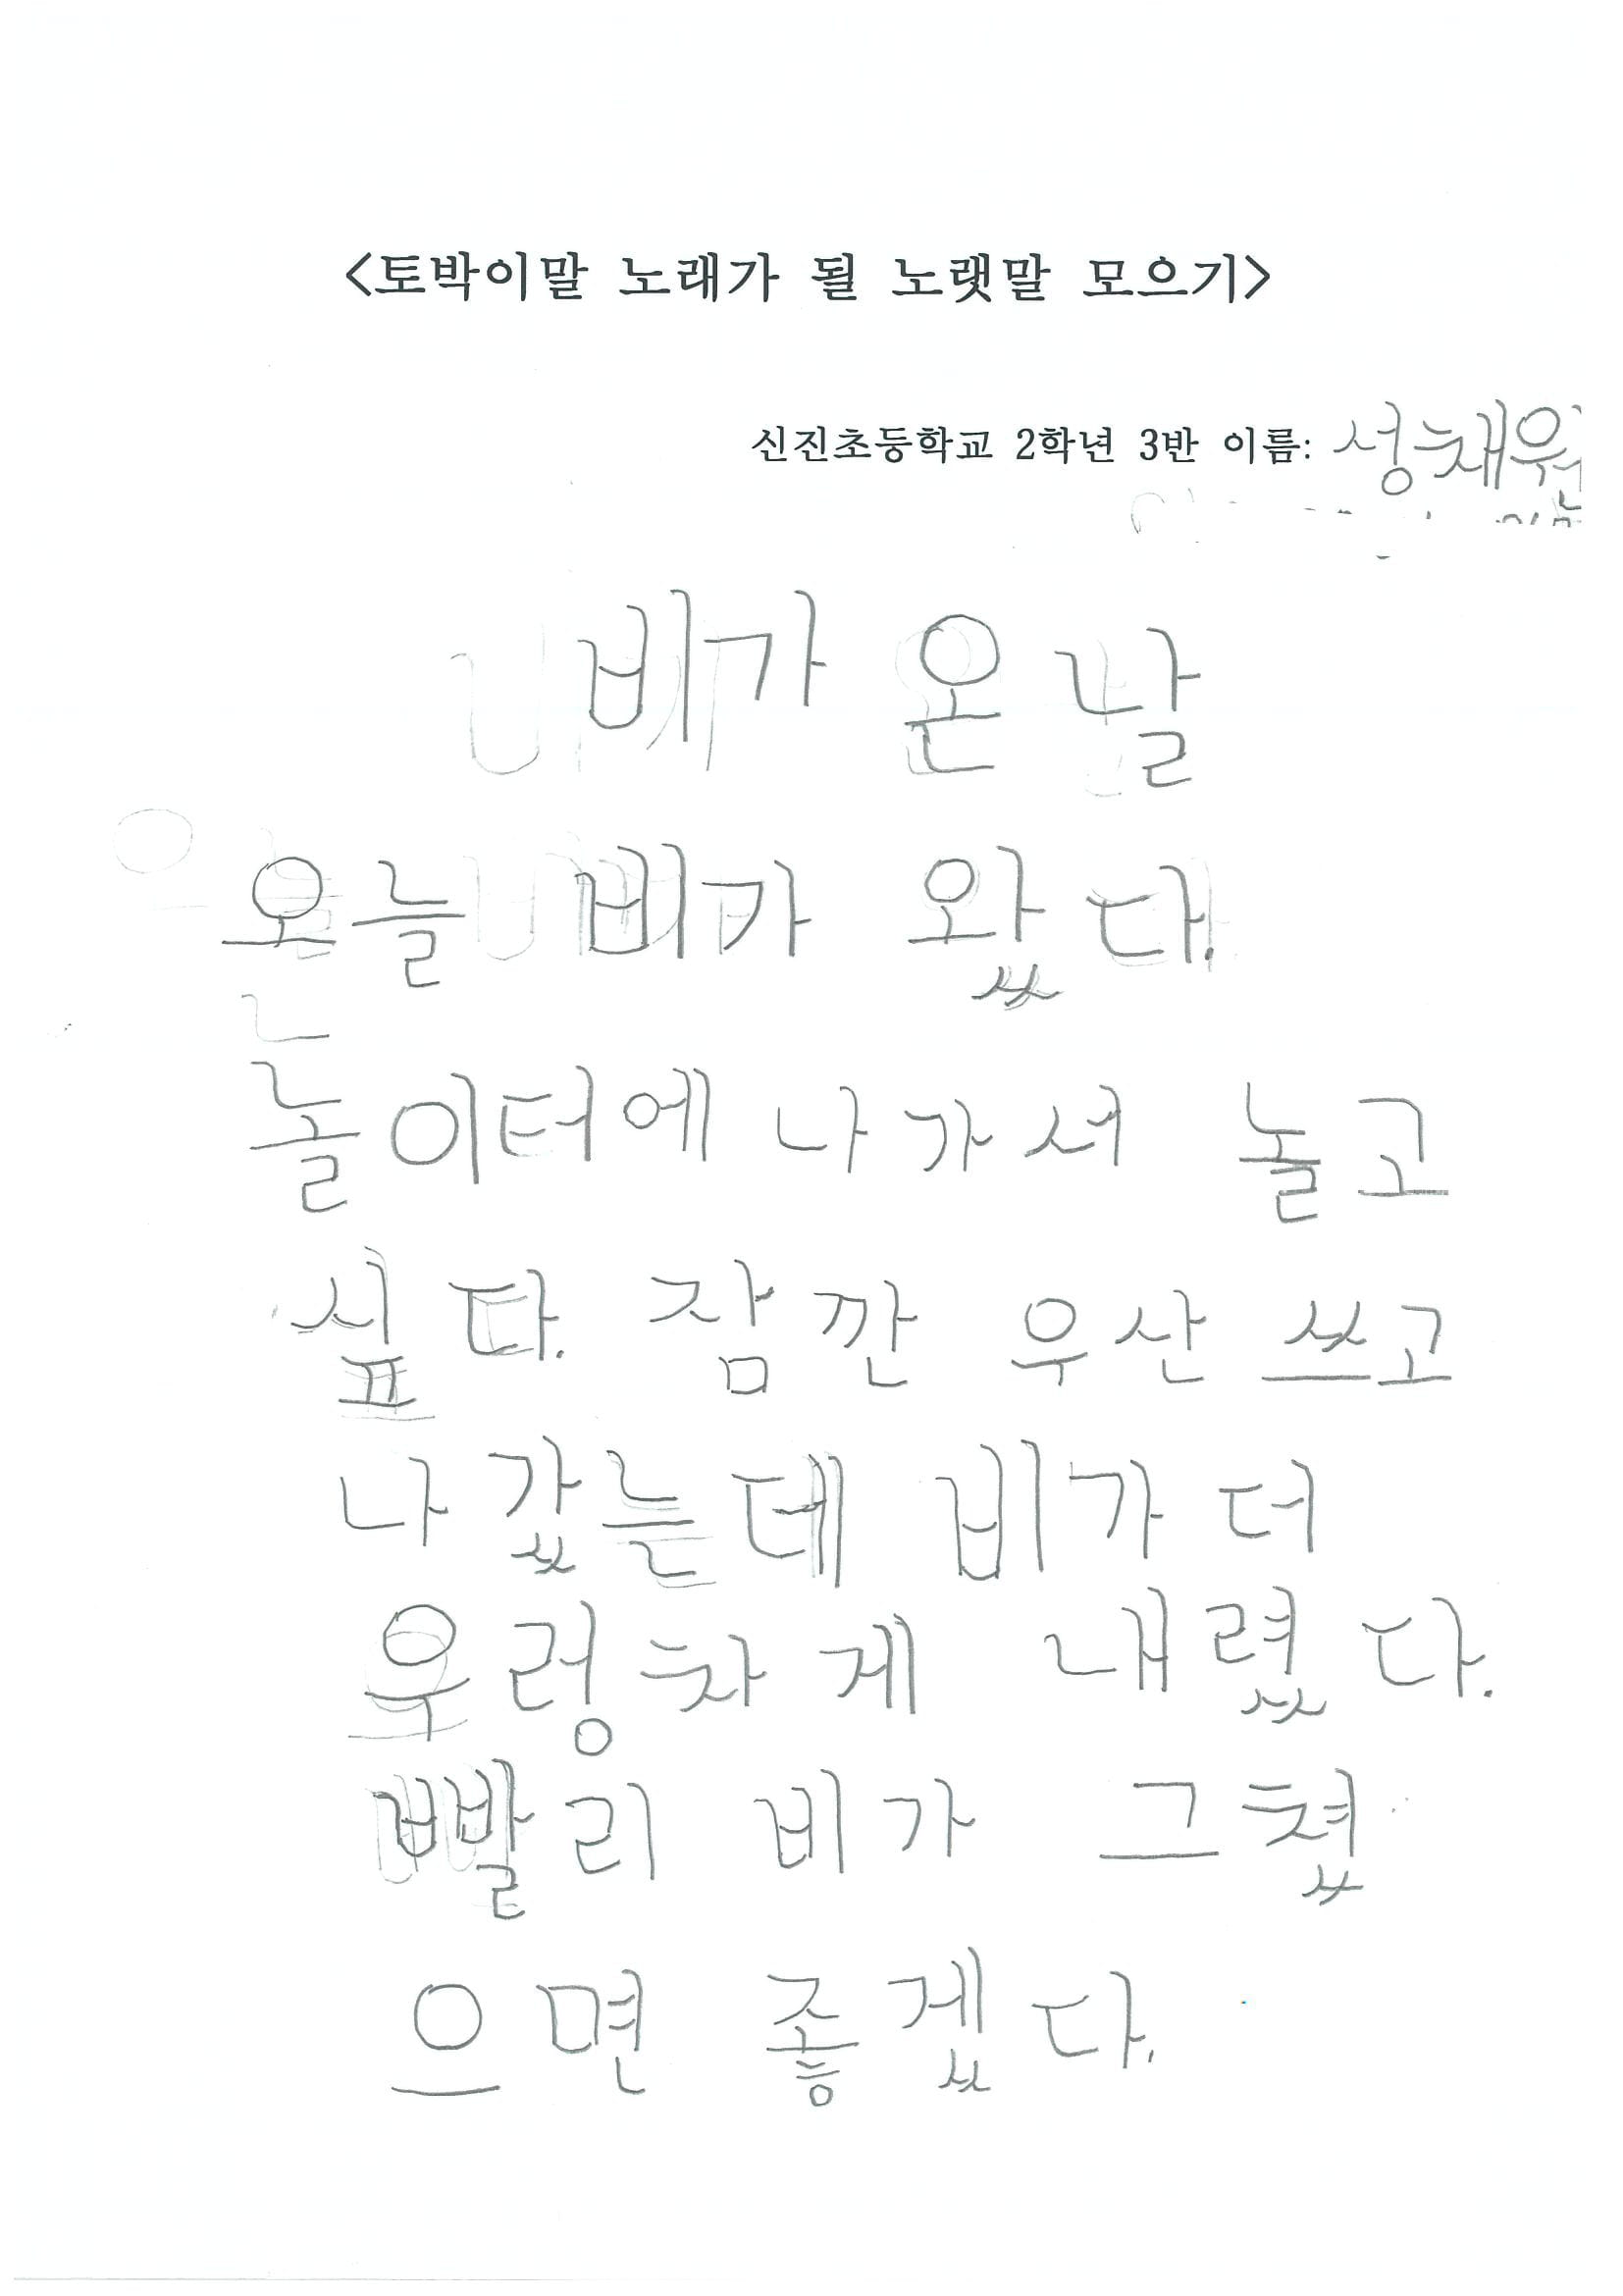 <토박이말 노래가 될 노랫말 모으기>
신진초등학교 2학년 3반 이름: 성채원
비가 온 날
오늘 비가 왔다.
놀이터에 나가서 놀고
싶다. 잠깐 우산 쓰고
나갔는데 비가 더
우렁차게 내렸다.
빨리 비가 그쳤
으면 좋겠다.